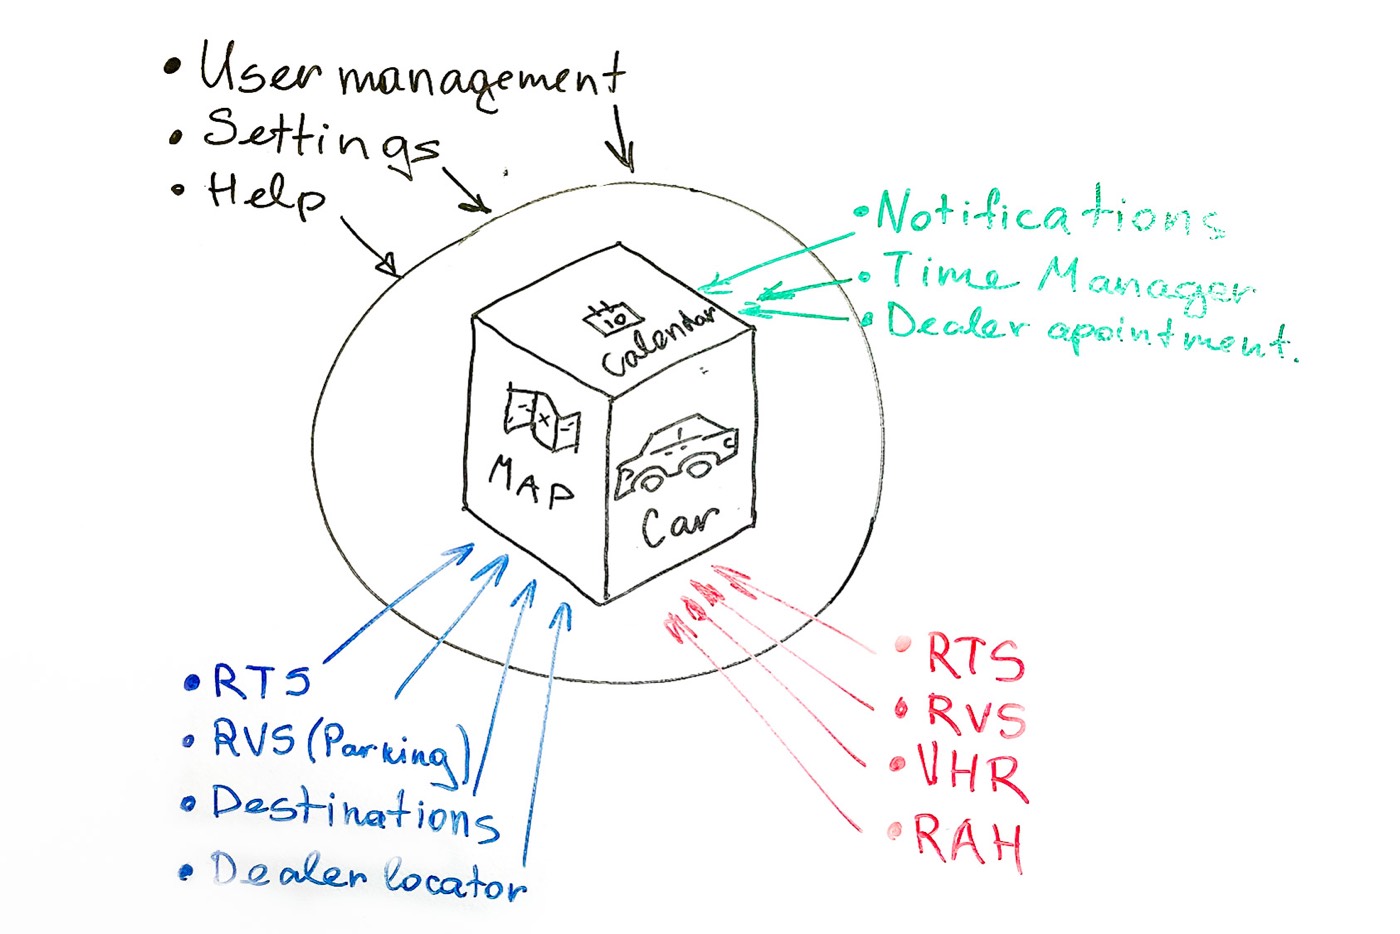 • User management
• Settings
• Help
• Notifications
• Time Manager
• Dealer apointment.
10
Calendar
MAP
Car
• RTS
• RVS (Parking)
• Destinations
• Dealer locator
• RTS
• RVS
• VHR
• RAH